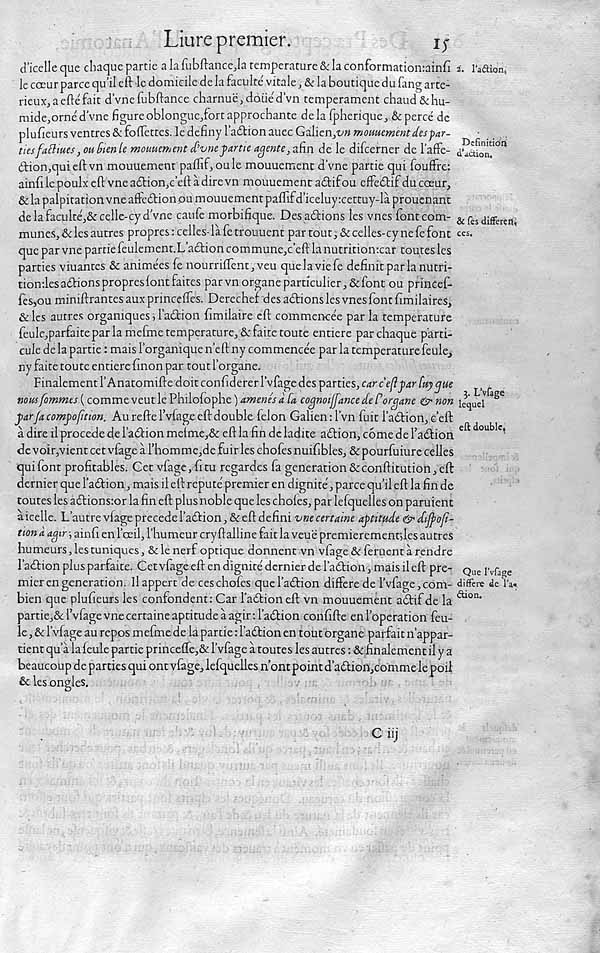 Liure premier. 15
d'icelle que chaque partie a la ſubſtance, la temperature & la conformation: ainſi
2. l'action,
le cœur parce qu'il eſt le domicile de la faculté vitale, & la boutique du ſang arte-
rieux, a eſté fait d'vne ſubſtance charnuë, doüé d'vn temperament chaud & hu-
mide, orné d'vne figure oblongue, fort approchante de la ſpherique, & percé de
pluſieurs ventres & foſſettes. Ie definy l'action auec Galien, vn mouuement des par-
ties factiues, ou bien le mouuement d'vne partie agente, afin de le diſcerner de l'affe-
Definition
d'action.
ction, qui eſt vn mouuement paſſif, ou le mouuement d'vne partie qui ſouffre:
ainſi le poulx eſt vne action, c'eſt à dire vn mouuement actif ou effectif du cœur,
& la palpitation vne affection ou mouuement paſſif d'iceluy: certuy-là prouenant
de la faculté, & celle-cy d'vne cauſe morbifique. Des actions les vnes ſont com-
& ſes differen-
ces.
munes, & les autres propres: celles-là ſe trouuent par tout, & celles-cy ne ſe font
que par vne partie ſeulement. L'action commune, c'eſt la nutrition: car toutes les
parties viuantes & animées ſe nourriſſent, veu que la vie ſe definit par la nutri-
tion: les actions propres ſont faites par vn organe particulier, & ſont ou princeſ-
ſes, ou miniſtrantes aux princeſſes. Derechef des actions les vnes ſont ſimilaires,
& les autres organiques; l'action ſimilaire eſt commencée par la temperature
ſeule, parfaite par la meſme temperature, & faite toute entiere par chaque parti-
cule de la partie: mais l'organique n'eſt ny commencée par la temperature ſeule,
ny faite toute entiere ſinon par tout l'organe.
Finalement l'Anatomiſte doit conſiderer l'vſage des parties, car c'eſt par luy que
nous ſommes (comme veut le Philoſophe) amenés à la cognoiſſance de l'organe & non
3. L'vſage
lequel
par ſa compoſition. Au reſte l'vſage eſt double ſelon Galien: l'vn ſuit l'action, c'eſt
à dire il procede de l'action meſme, & eſt la fin de ladite action, cóme de l'action
eſt double,
de voir, vient cet vſage à l'homme, de fuir les choſes nuiſibles, & pourſuiure celles
qui ſont profitables. Cet vſage, ſi tu regardes ſa generation & conſtitution, eſt
dernier que l'action, mais il eſt reputé premier en dignité, parce qu'il eſt la fin de
toutes les actions: or la fin eſt plus noble que les choſes, par leſquelles on paruient
à icelle. L'autre vſage precede l'action, & eſt defini vne certaine aptitude & diſpoſi-
tion à agir; ainſi en l'œil, l'humeur cryſtalline fait la veuë premierement; les autres
humeurs, les tuniques, & le nerf optique donnent vn vſage & ſeruent à rendre
l'action plus parfaite. Cet vſage eſt en dignité dernier de l'action, mais il eſt pre-
mier en generation. Il appert de ces choſes que l'action differe de l'vſage, com-
Que l'vſage
differe de l'a-
ction.
bien que pluſieurs les confondent: Car l'action eſt vn mouuement actif de la
partie, & l'vſage vne certaine aptitude à agir: l'action conſiſte en l'operation ſeu-
le, & l'vſage au repos meſme de la partie: l'action en tout organe parfait n'appar-
tient qu'à la ſeule partie princeſſe, & l'vſage à toutes les autres: & finalement il y a
beaucoup de parties qui ont vſage, leſquelles n'ont point d'action, comme le poil
& les ongles.
C iij